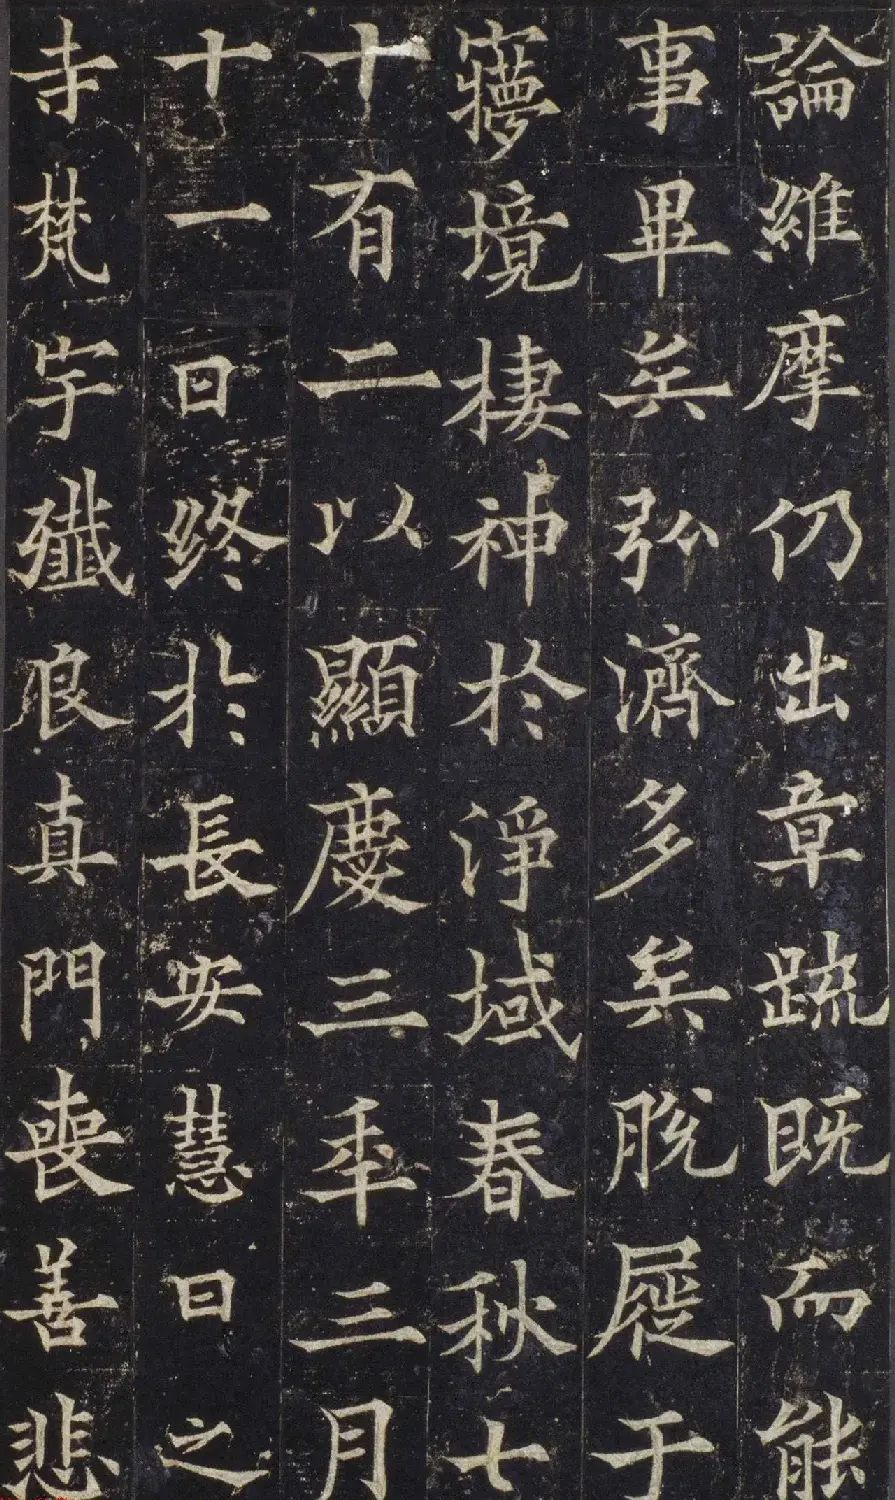 論維摩仍出章䟽既而能
事畢矣弘濟多矣脫屣于
㝱境棲神於淨域春秋七
十有二以顯慶三年三月
十一日終於長安慧日之
寺梵宇殲良真門喪善悲